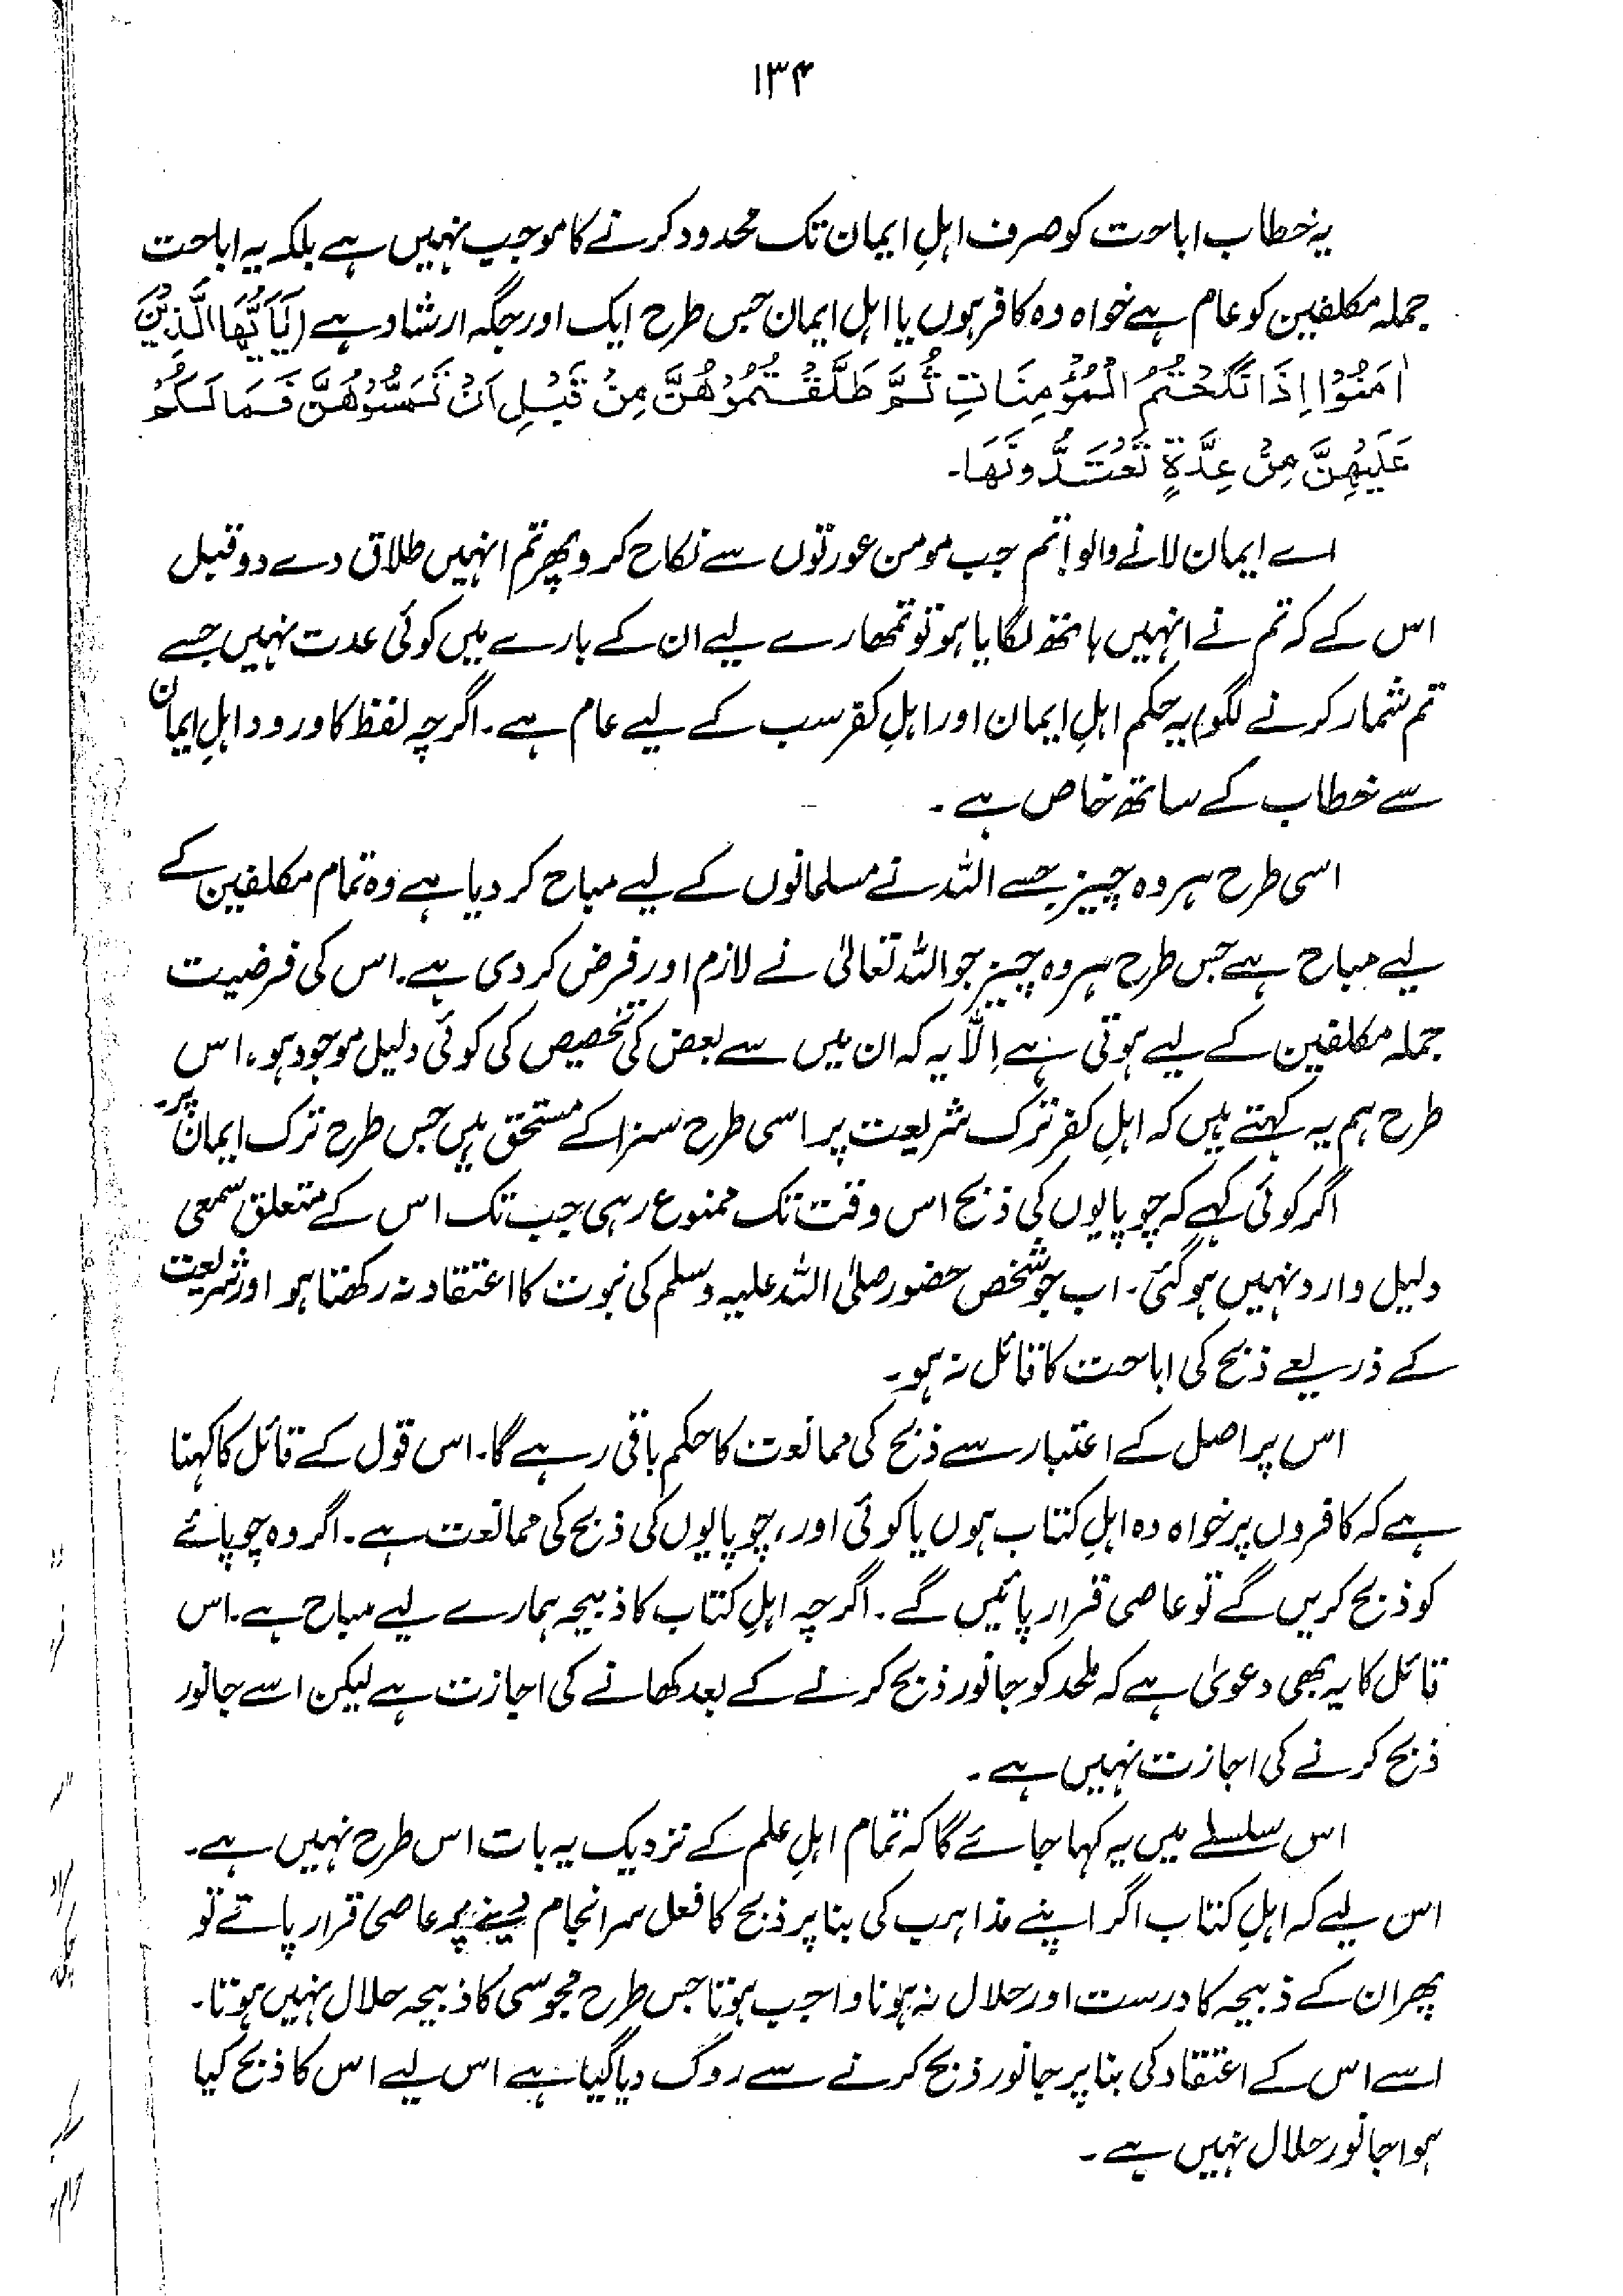 ۱۳۴
یہ خطاب اباحت کو صرف اہلِ ایمان تک محدود کرنے کا موجب نہیں ہے بلکہ یہ اباحت
جملہ مکلفین کو عام ہے خواہ وہ کافر ہوں یا اہل ایمان جس طرح ایک اور جگہ ارشاد ہے (یٰٓاَیُّھَا الَّذِیْنَ
اٰمَنُوْا اِذَا نَکَحْتُمُ الْمُؤْمِنَاتِ ثُمَّ طَلَّقْتُمُوْھُنَّ مِنْ قَبْلِ اَنْ تَمَسُّوْھُنَّ فَمَا لَکُمْ
عَلَیْھِنَّ مِنْ عِدَّۃٍ تَعْتَدُّوْنَھَا۔
اے ایمان لانے والو! تم جب مومن عورتوں سے نکاح کرو پھر تم انہیں طلاق دے دو قبل
اس کے کہ تم نے انہیں ہاتھ لگایا ہو تو تمھارے لیے ان کے بارے میں کوئی عدت نہیں جسے
تم شمار کرنے لگو) یہ حکم اہلِ ایمان اور اہلِ کفر سب کے لیے عام ہے۔ اگرچہ لفظ کا ورود اہلِ ایمان
سے خطاب کے ساتھ خاص ہے۔
اسی طرح ہر وہ چیز جسے اللہ نے مسلمانوں کے لیے مباح کر دیا ہے وہ تمام مکلفین کے
لیے مباح ہے جس طرح ہر وہ چیز جو اللہ تعالیٰ نے لازم اور فرض کر دی ہے۔ اس کی فرضیت
جملہ مکلفین کے لیے ہوتی ہے اِلّا یہ کہ ان میں سے بعض کی تخصیص کی کوئی دلیل موجود ہو، اس
طرح ہم یہ کہتے ہیں کہ اہلِ کفر ترک شریعت پر اسی طرح سزا کے مستحق ہیں جس طرح ترک ایمان پر۔
اگر کوئی کہے کہ چوپایوں کی ذبح اس وقت تک ممنوع رہی جب تک اس کے متعلق سمعی
دلیل وارد نہیں ہو گئی۔ اب جو شخص حضور صلی اللہ علیہ وسلم کی نبوت کا اعتقاد نہ رکھتا ہو اور شریعت
کے ذریعے ذبح کی اباحت کا قائل نہ ہو۔
اس پر اصل کے اعتبار سے ذبح کی ممانعت کا حکم باقی رہے گا۔ اس قول کے قائل کا کہنا
ہے کہ کافروں پر خواہ وہ اہلِ کتاب ہوں یا کوئی اور، چوپایوں کی ذبح کی ممانعت ہے۔ اگر وہ چوپائے
کو ذبح کریں گے تو عاصی قرار پائیں گے۔ اگرچہ اہلِ کتاب کا ذبیحہ ہمارے لیے مباح ہے۔ اس
قائل کا یہ بھی دعویٰ ہے کہ ملحد کو جانور ذبح کرنے کے بعد کھانے کی اجازت ہے لیکن اسے جانور
ذبح کرنے کی اجازت نہیں ہے۔
اس سلسلے میں یہ کہا جائے گا کہ تمام اہلِ علم کے نزدیک یہ بات اس طرح نہیں ہے۔
اس لیے کہ اہلِ کتاب اگر اپنے مذاہب کی بنا پر ذبح کا فعل سرانجام دینے پر عاصی قرار پاتے تو
پھر ان کے ذبیحہ کا درست اور حلال نہ ہونا واجب ہوتا جس طرح مجوسی کا ذبیحہ حلال نہیں ہوتا۔
اسے اس کے اعتقاد کی بنا پر جانور ذبح کرنے سے روک دیا گیا ہے اس لیے اس کا ذبح کیا
ہوا جانور حلال نہیں ہے۔